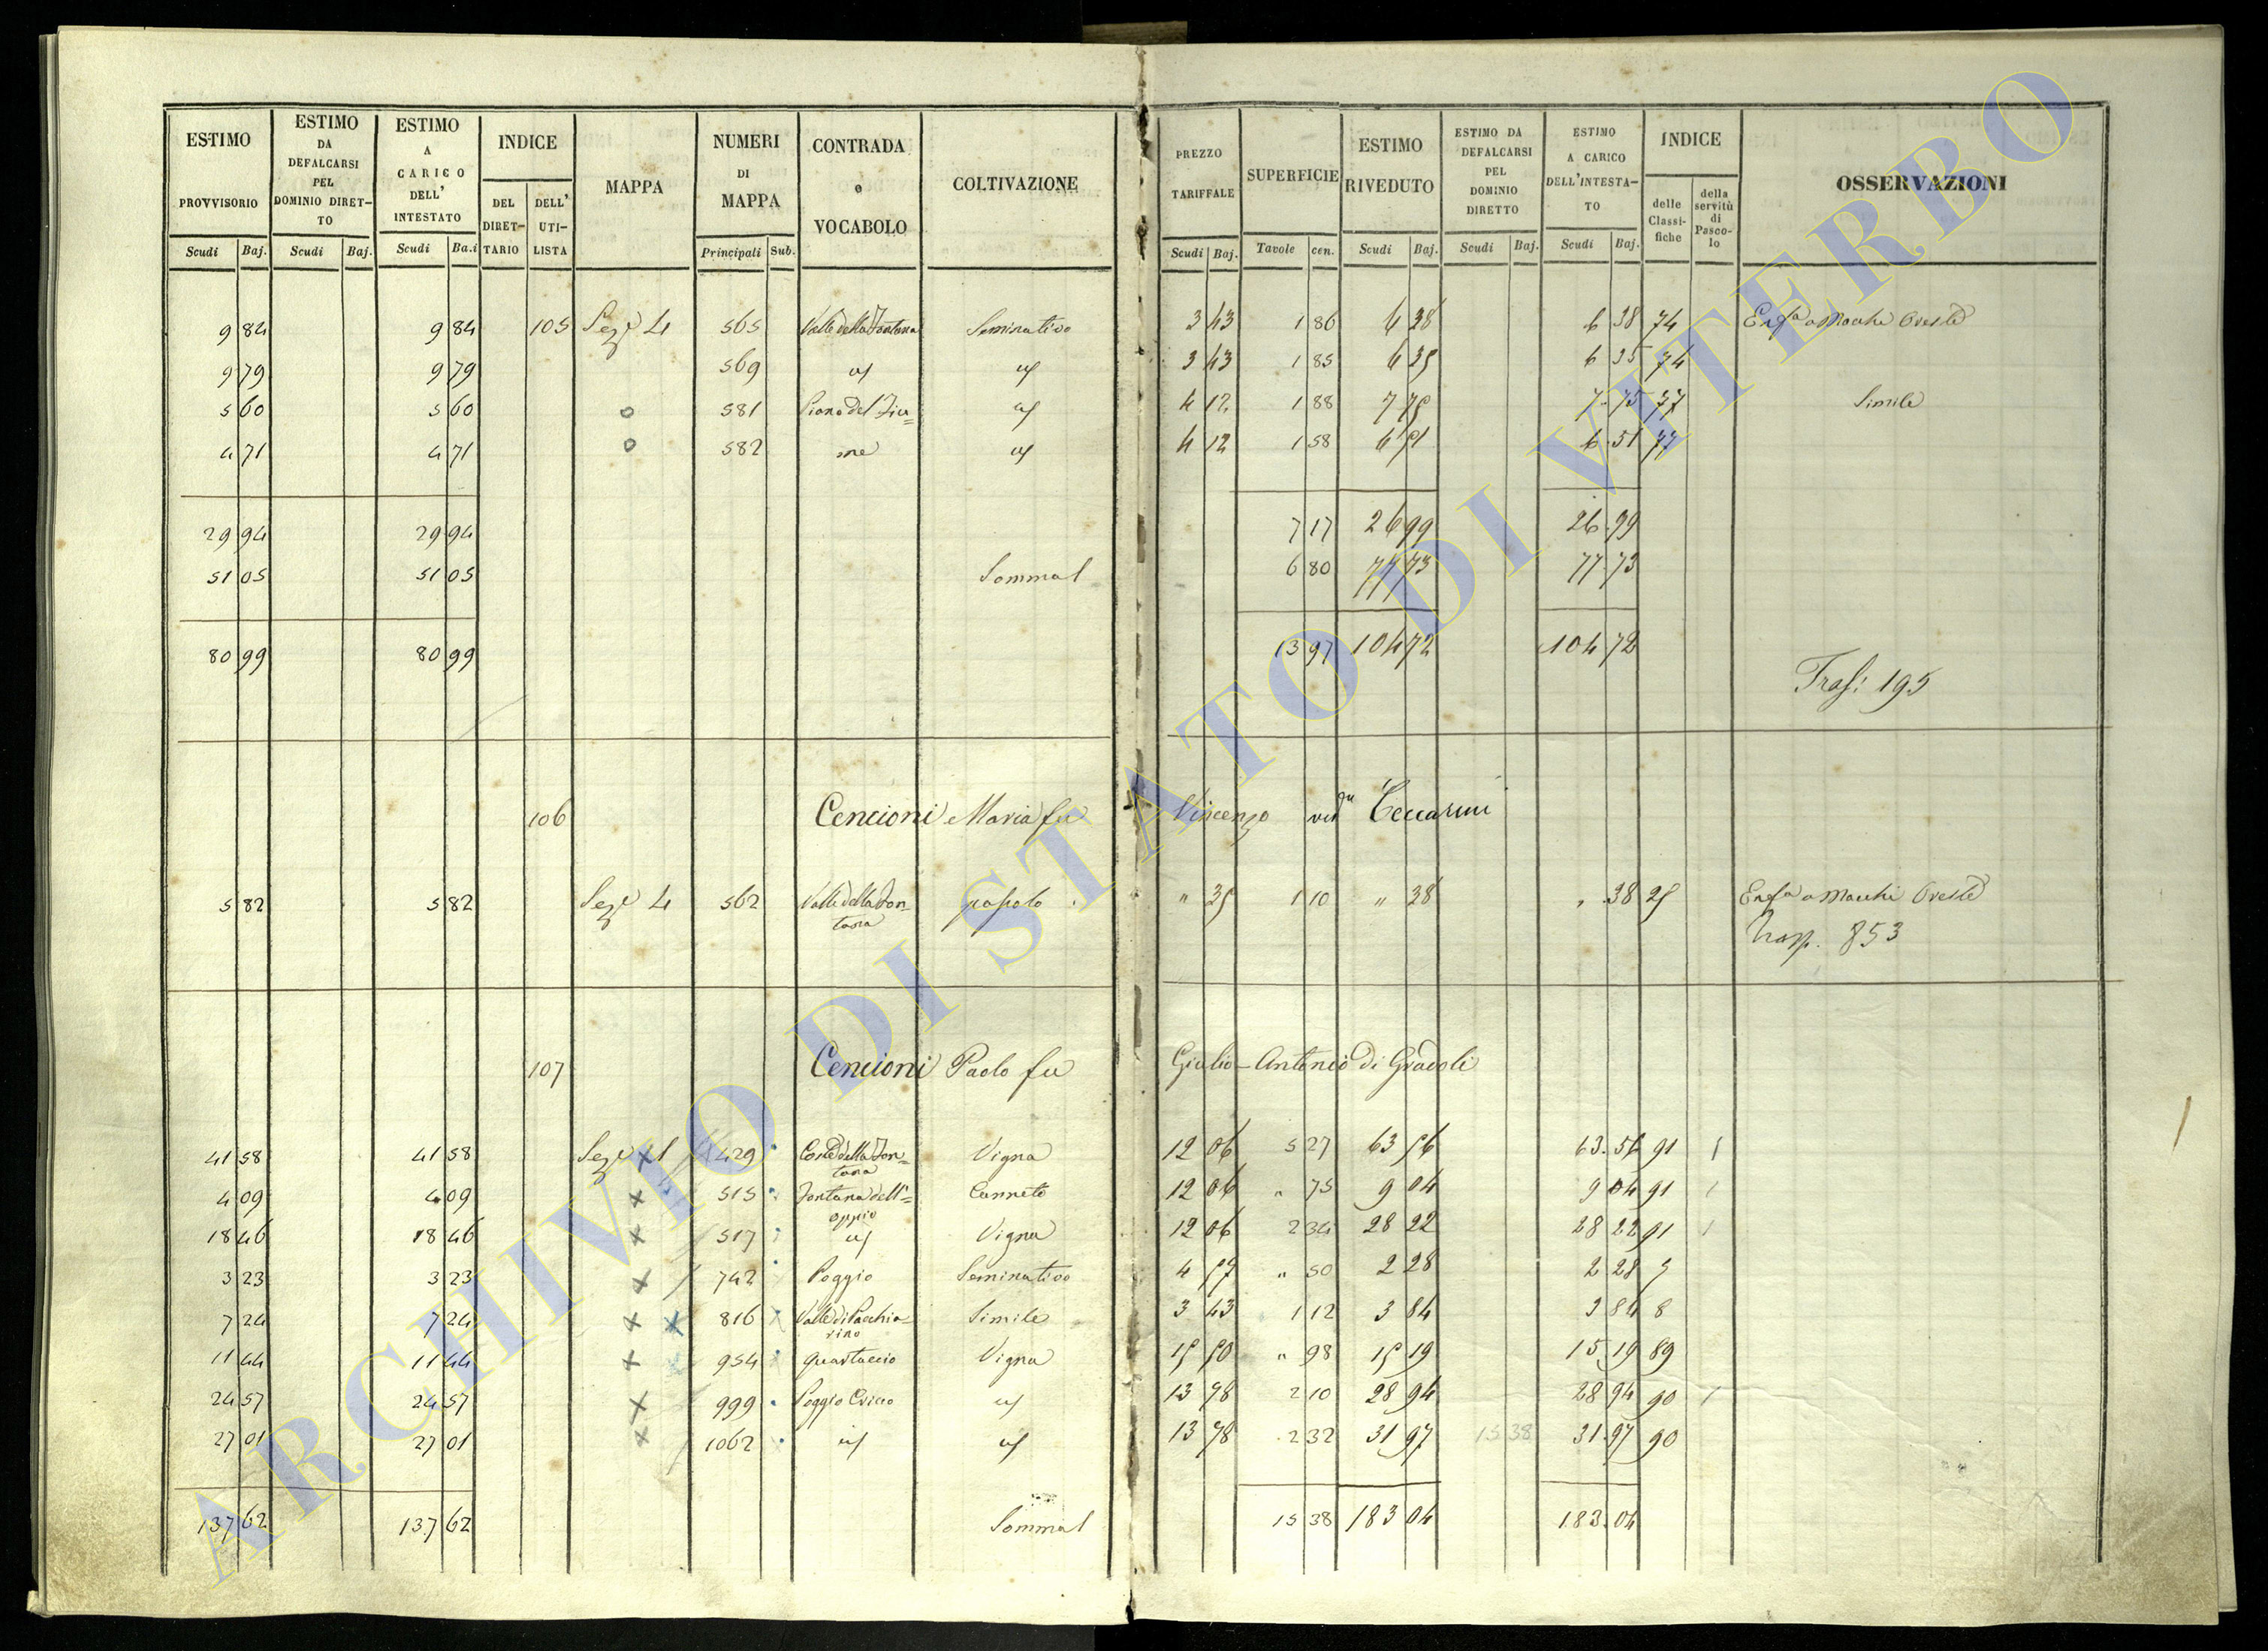 ESTIMO PROVVISORIO Scudi Baj. | ESTIMO DA DEFALCARSI PEL DOMINIO DIRET-TO Scudi Baj. | ESTIMO A CARICO DELL' INTESTATO Scudi Ba.i | INDICE DEL DIRET-TARIO DELL' UTI-LISTA | MAPPA | NUMERI DI MAPPA Principali Sub. | CONTRADA o VOCABOLO | COLTIVAZIONE | PREZZO TARIFFALE Scudi Baj. | SUPERFICIE Tavole cen. | ESTIMO RIVEDUTO Scudi Baj. | ESTIMO DA DEFALCARSI PEL DOMINIO DIRETTO Scudi Baj. | ESTIMO A CARICO DELL'INTESTA-TO Scudi Baj. | INDICE delle Classi-fiche della servitù di Pasco-lo | OSSERVAZIONI
9 84 9 84 105 Seze 4 565 Valle della Fontana Seminativo 3 43 1 86 6 38 6 38 74 Enfa a Macchi Oreste
9 79 9 79 569 id id 3 43 1 85 6 35 6 35 74
5 60 5 60 o 581 Piano del Fiu= id 4 12 1 88 7 75 7 75 37 Simile
4 71 4 71 o 582 me id 4 12 1 58 6 51 6 51
29 94 29 94 7 17 26 99 26 99
51 05 51 05 Somma 6 80 77 73 77 73
80 99 80 99 13 97 104 72 104 72
Trasi 195
106 Cencioni Maria fu Vincenzo veda Ceccarini
5 82 5 82 Sezе 4 562 Valle della Fon= pascolo " 35 1 10 " 38 " 38 25 Enfa a Macchi Oreste
tana Trasp. 853
107 Cencioni Paolo fu Giulio-Antonio di Gradoli
41 58 41 58 Seze x 1 429 Coste della Fon= Vigna 12 06 5 27 63 56 63 56 91 1
tana
4 09 4 09 x 515 Fontana dell'= Canneto 12 06 " 75 9 04 9 04 91 1
oppio
18 46 18 46 x 517 id Vigna 12 06 2 34 28 22 28 22 91 1
3 23 3 23 x 742 Poggio Seminativo 4 57 " 50 2 28 2 28 5
7 24 7 24 x x 816 Valle di Pacchia= Simile 3 43 1 12 3 84 3 84 8
rino
11 44 11 44 x 954 Quartaccio Vigna 15 50 " 98 15 19 15 19 89
24 57 24 57 x 999 Poggio Cricco id 13 78 2 10 28 94 28 94 90 1
27 01 27 01 x 1062 id id 13 78 2 32 31 97 15 38 31 97 90
137 62 137 62 Somma 15 38 183 04 183 04
ARCHIVIO DI STATO DI VITERBO